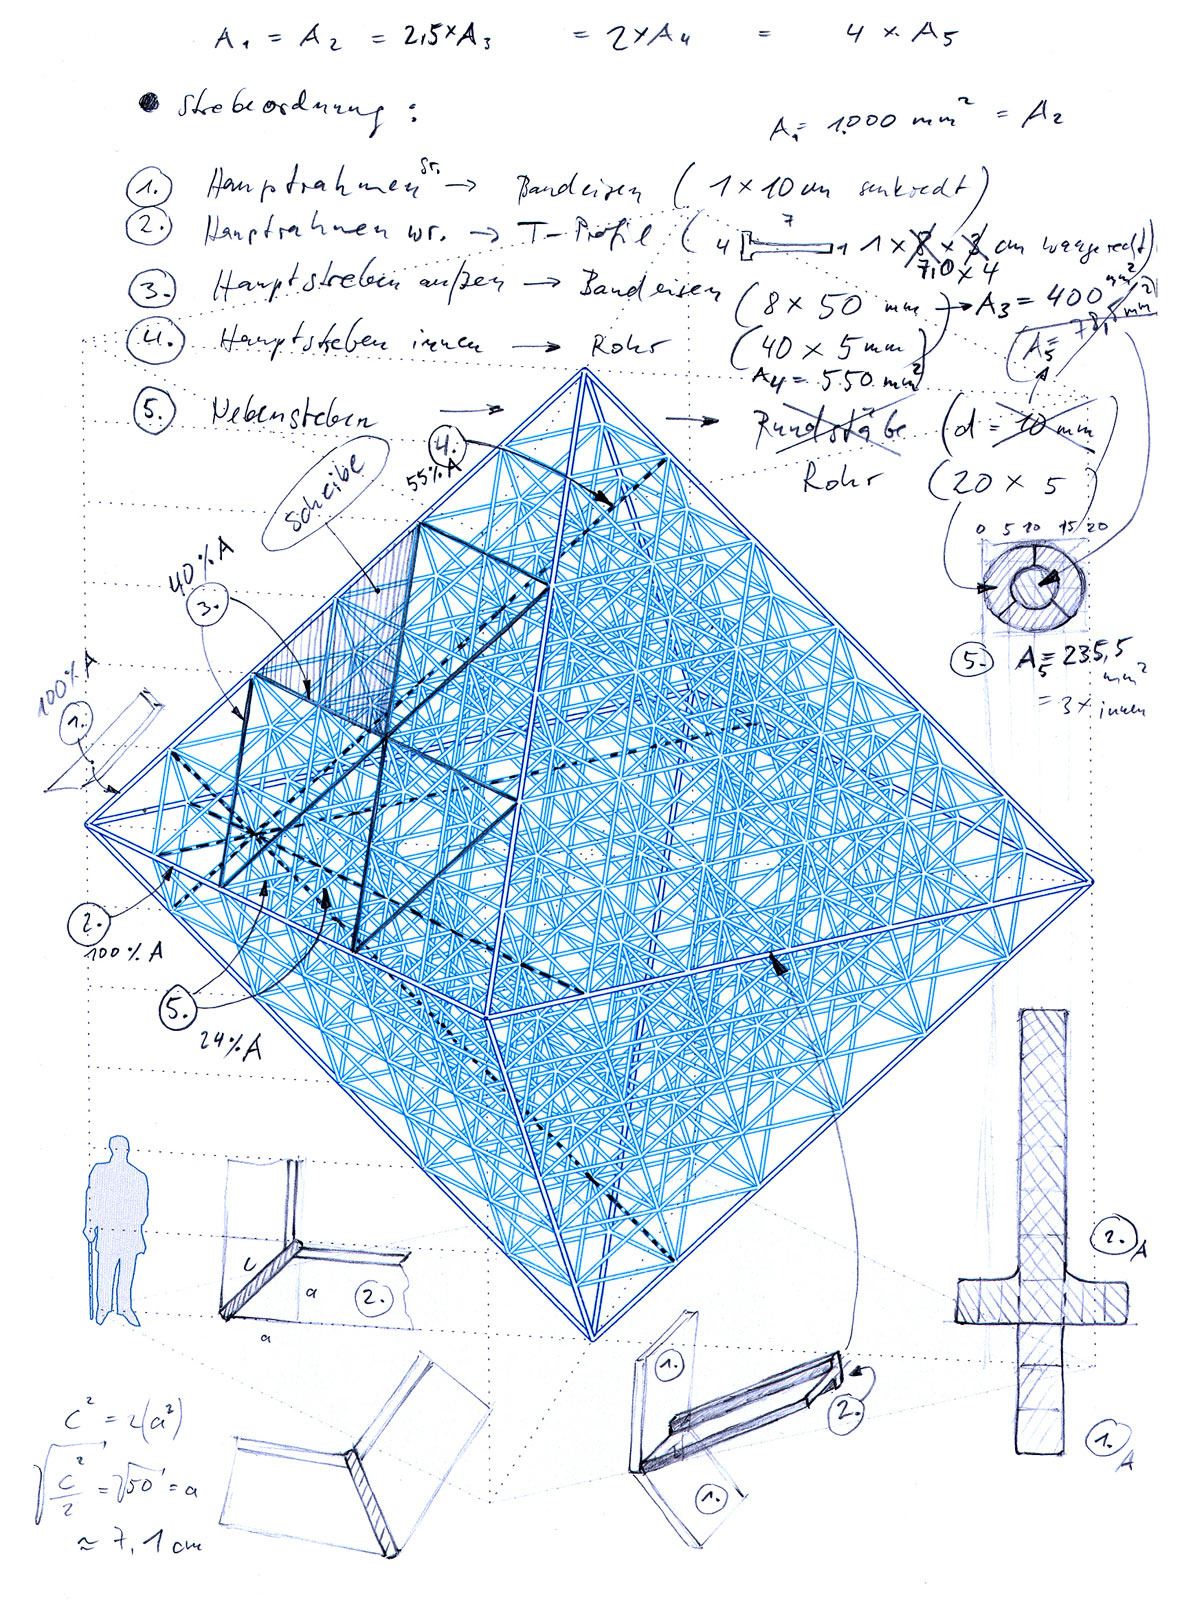 A₁ = A₂ = 2,5×A₃ = 2×A₄ = 4 × A₅
● Strebeordnung :
A₁= 1.000 mm² = A₂
1. Hauptrahmen sr. → Bandeisen ( 1 × 10 cm senkrecht)
2. Hauptrahmen wr. → T-Profil ( 4 7 1 1 × 8 × 3 cm waagerecht)
7,0 × 4
3. Hauptstreben außen → Bandeisen (8 × 50 mm) → A₃ = 400 mm²
4. Hauptstreben innen → Rohr (40 × 5 mm)
A₅= 78,5 mm²
A₄ = 550 mm²
5. Nebenstreben → → Rundstäbe (d = 10 mm)
Rohr (20 × 5)
4.
55% A
Scheibe
0 5 10 15 20
40% A
3.
5. A₅= 235,5 mm²
= 3 × innen
100% A
1.
2.
100% A
5.
24% A
c
a
a
2.
2. A
1.
2.
1.
1. A
c² = 2(a²)
√c²/2 = √50 = a
≈ 7,1 cm